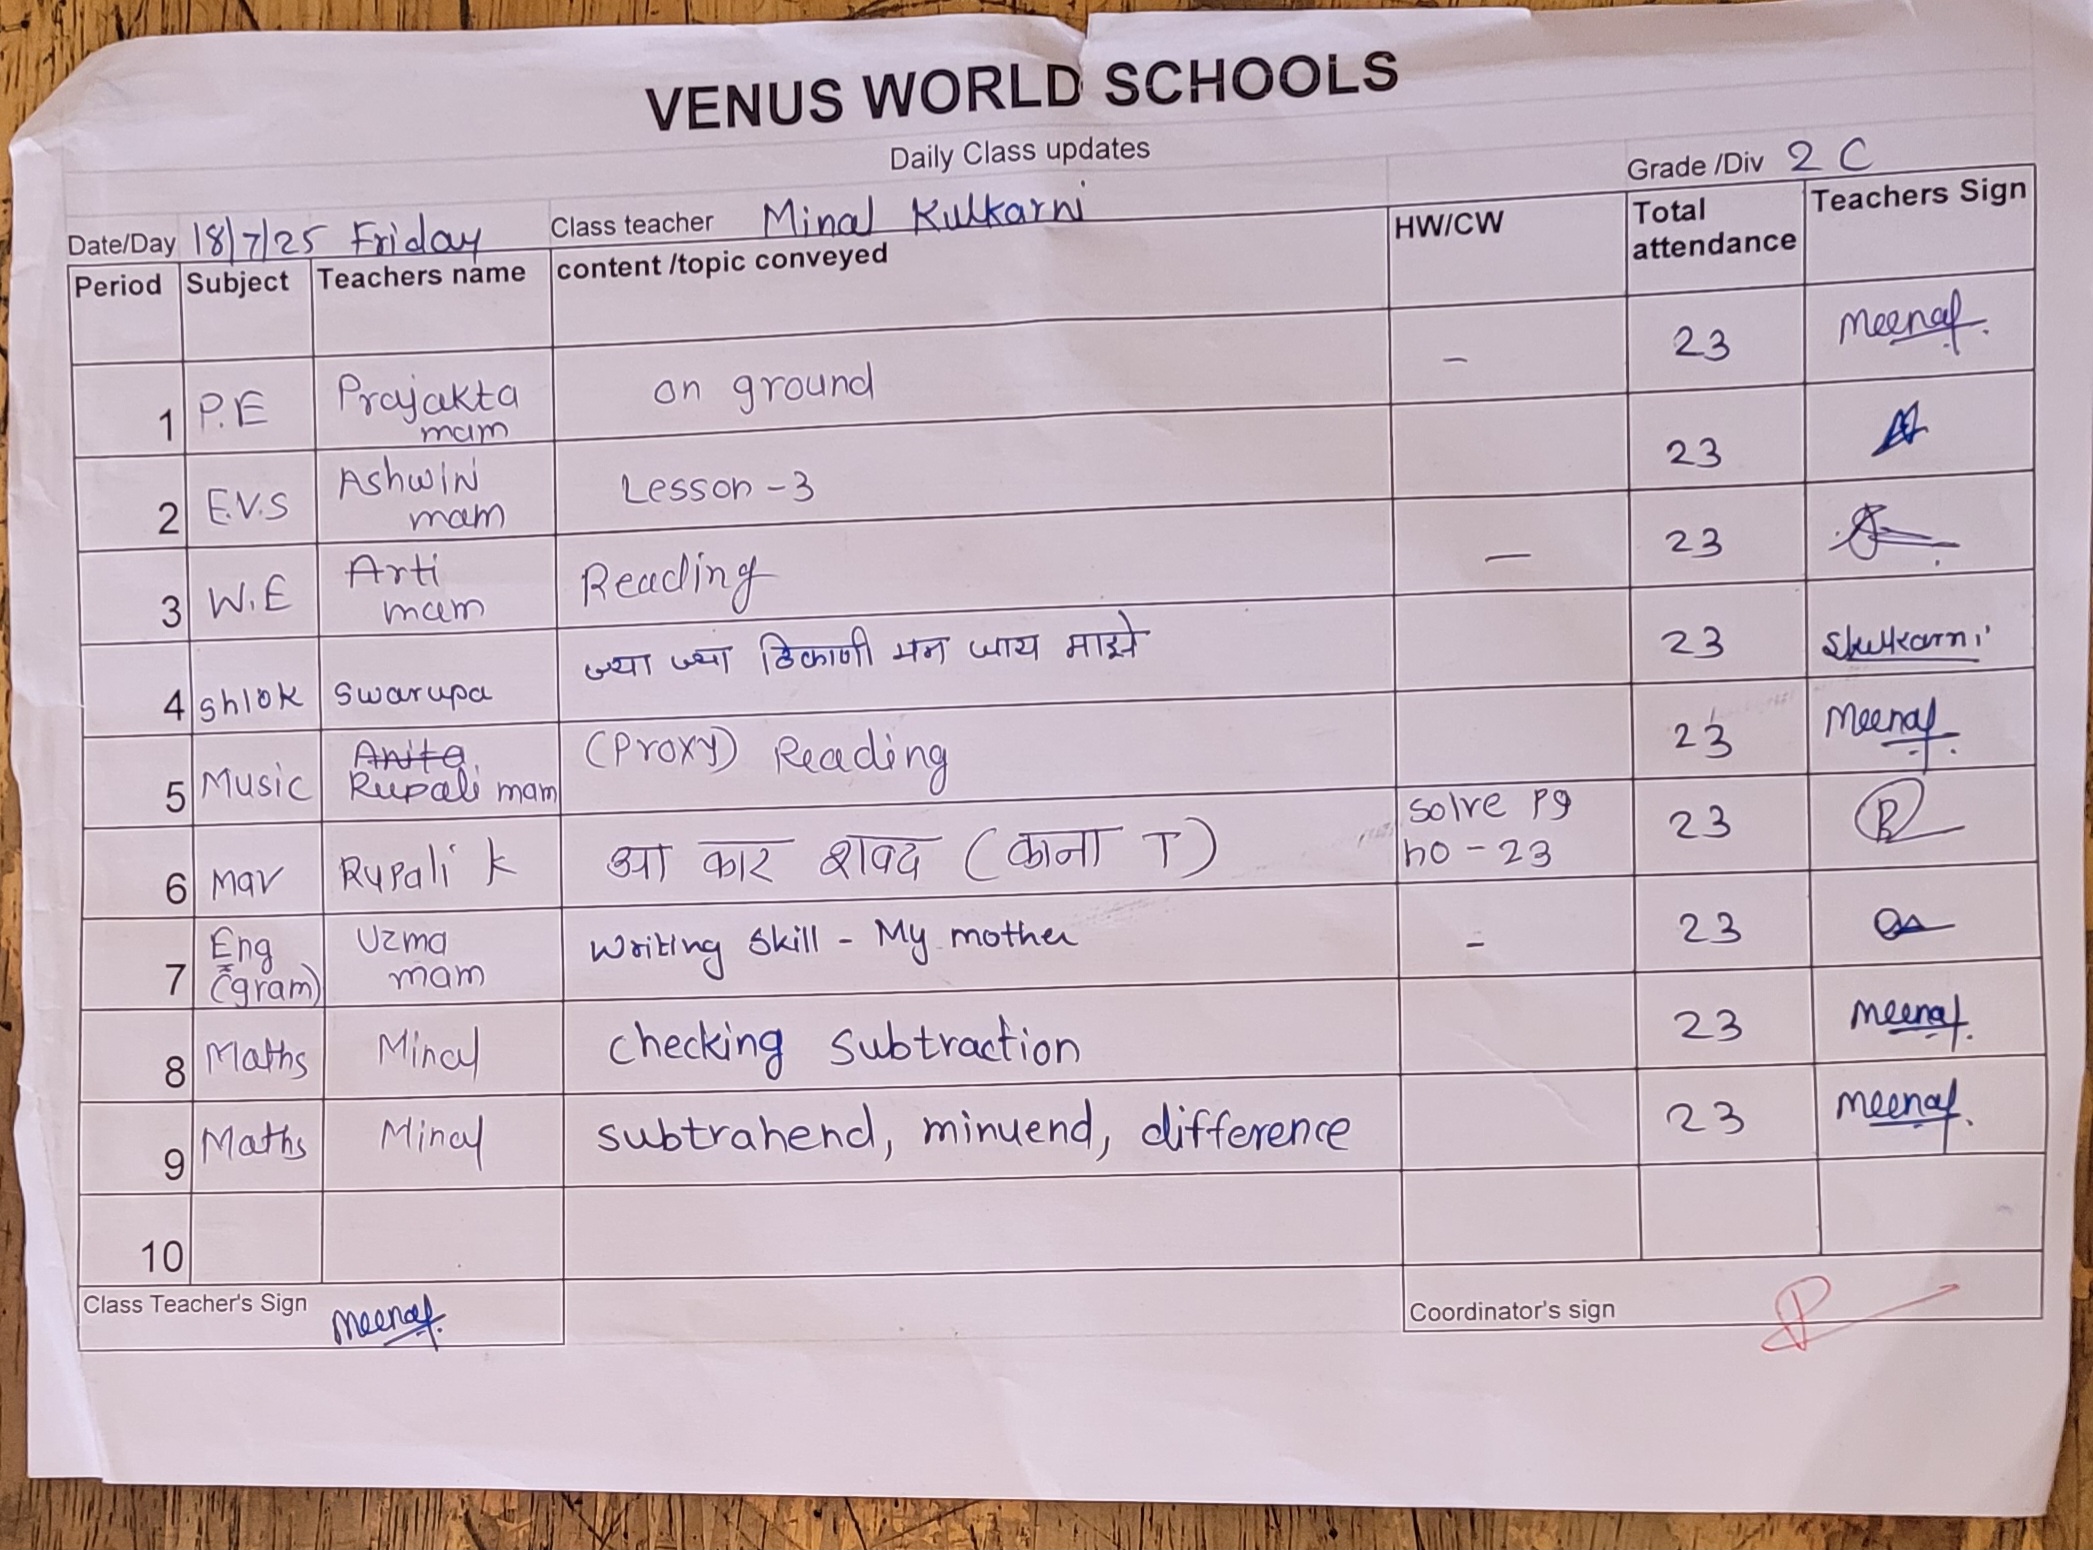 VENUS WORLD SCHOOLS
Daily Class updates
Grade /Div 2 C
Date/Day 18/7/25 Friday Class teacher Minal Kulkarni
Period Subject Teachers name content /topic conveyed HW/CW Total attendance Teachers Sign
1 P.E Prajakta mam on ground - 23 Meenal.
2 E.V.S Ashwini mam Lesson - 3 23
3 W.E Arti mam Reading — 23
4 Shlok Swarupa ज्या ज्या ठिकाणी मन जाय माझे 23 Skulkarni
5 Music Anita Rupali mam (Proxy) Reading 23 Meenal.
6 Mar Rupali K आ कार शब्द (काना ा) Solve Pg no - 23 23 R
7 Eng (gram) Uzma mam Writing Skill - My mother - 23
8 Maths Minal checking subtraction 23 Meenal.
9 Maths Minal subtrahend, minuend, difference 23 Meenal.
10
Class Teacher's Sign Meenal. Coordinator's sign